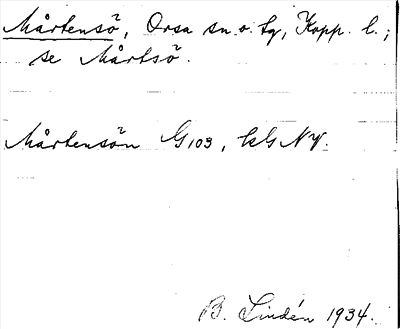 Mårtensö, Orsa sn o. tg, Kopp. l.;
se Mårtsö.
Mårtensön G103, bl NV.
B. Lindén 1934.